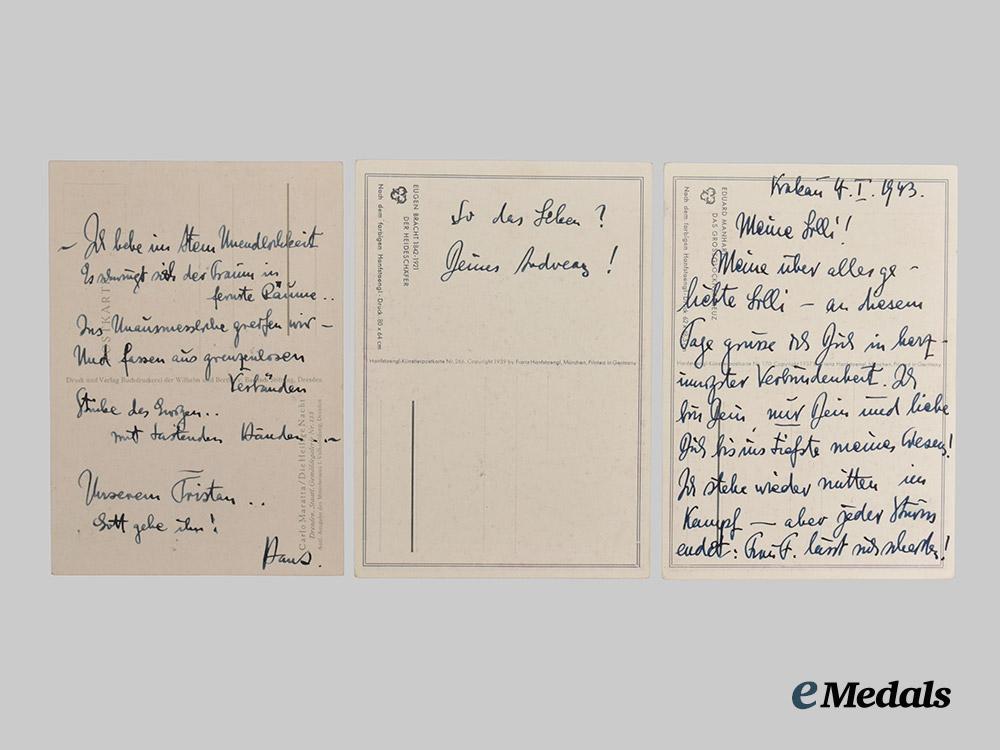 – Ich bebe im Atem Unendlichkeit
Es schwingt sich der Traum in
fernste Räume..
Ins Unausmessliche greifen wir –
Und fassen aus grenzenlosen
Verbänden
Stübe des Ewigen..
mit tastenden Händen..–
Unserem Tristan..
Gott gebe ihn!
Hans.
POSTKARTE
Druck und Verlag Buchdruckerei der Wilhelm und Bertha v. Baensch Stiftung, Dresden
Carlo Maratta / Die Heilige Nacht
Dresden, Staatl. Gemäldegalerie Nr.
So das Leben?
Deines Andreas!
EUGEN BRACHT 1842-1921
DER HEIDESCHÄFER
Nach dem farbigen Hanfstaengl-Druck 80 x 64 cm
Hanfstaengl-Künstlerpostkarte Nr. 266. Copyright 1939 by Franz Hanfstaengl, München, Printed in Germany
Krakau 4.I.1943.
Meine Lilli!
Meine über alles ge-
liebte Lilli – an diesem
Tage grüsse ich Dich in herz-
innigster Verbundenheit. Ich
bin Dein, nur Dein und liebe
Dich bis ins Tiefste meines Wesens!
Ich stehe wieder mitten im
Kampf – aber jeder Sturm
endet: Frau F. lässt sich scheiden!
EDUARD
DAS
Nach dem farbigen Hanfstaengl-Druck
eMedals